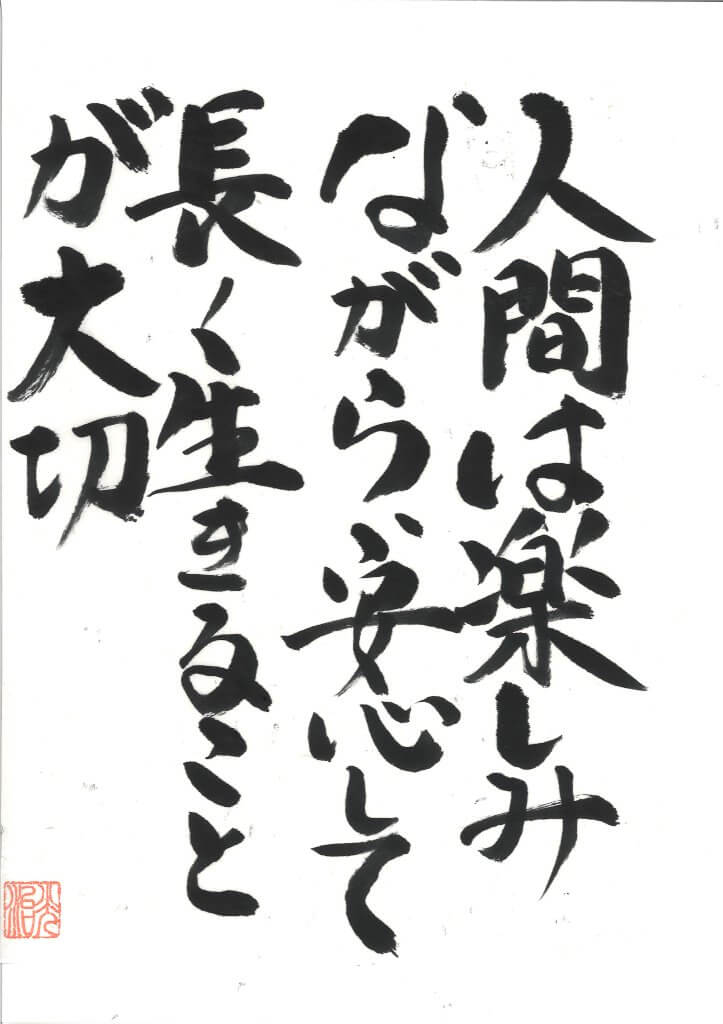 人間は楽しみ
ながら安心して
長く生きること
が大切